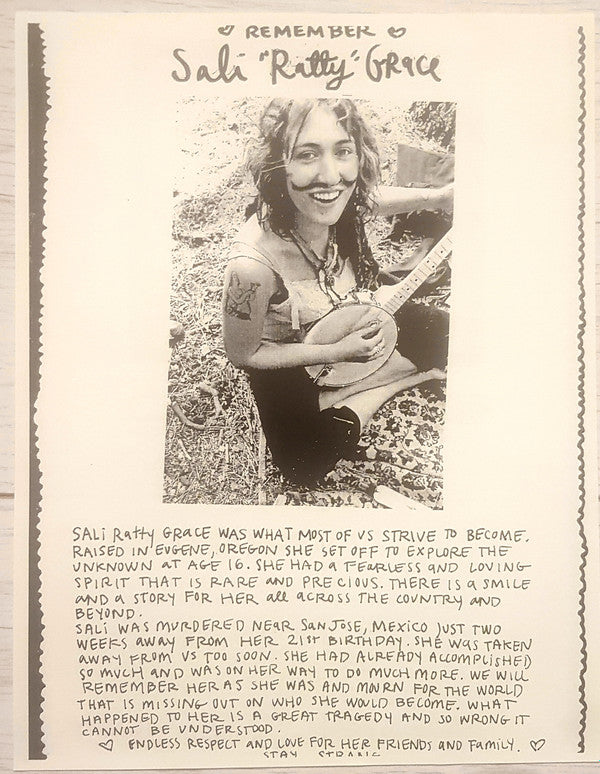 ♡ REMEMBER ♡
Sali "Ratty" Grace
SALI Ratty GRACE WAS WHAT MOST OF US STRIVE TO BECOME.
RAISED IN EUGENE, OREGON SHE SET OFF TO EXPLORE THE
UNKNOWN AT AGE 16. SHE HAD A FEARLESS AND LOVING
SPIRIT THAT IS RARE AND PRECIOUS. THERE IS A SMILE
AND A STORY FOR HER all ACROSS THE COUNTRY AND
BEYOND.
SALI WAS MURDERED NEAR SAN JOSE, MEXICO JUST TWO
WEEKS AWAY FROM HER 21st BIRTHDAY. SHE WAS TAKEN
AWAY FROM US TOO SOON. SHE HAD ALREADY ACCOMPLISHED
SO MUCH AND WAS ON HER WAY TO DO MUCH MORE. WE WILL
REMEMBER HER AS SHE WAS AND MOURN FOR THE WORLD
THAT IS MISSING OUT ON WHO SHE WOULD BECOME. WHAT
HAPPENED TO HER IS A GREAT TRAGEDY AND SO WRONG IT
CANNOT BE UNDERSTOOD.
♡ ENDLESS RESPECT AND LOVE FOR HER FRIENDS AND FAMILY. ♡
STAY STRONG